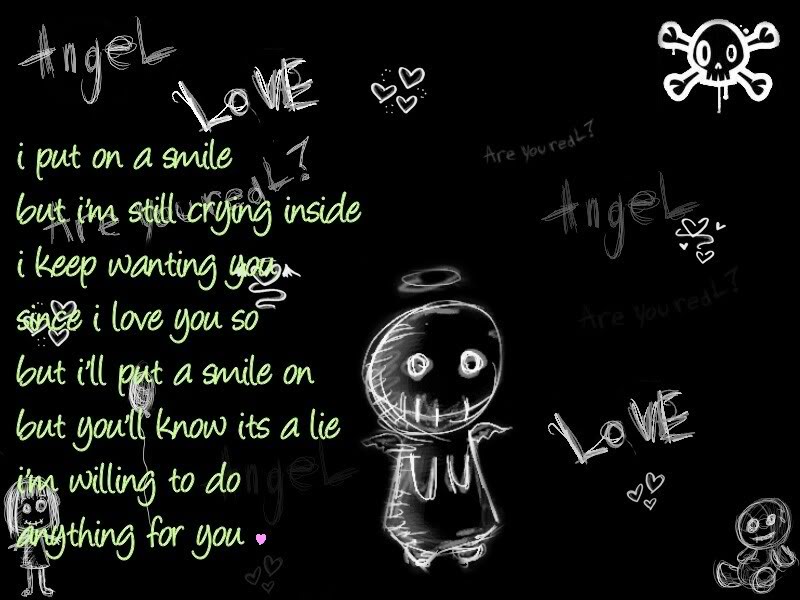 AngeL
LOVE
Are You reaL?
i put on a smile
Are You reaL?
but i'm still crying inside
AngeL
i keep wanting you
since i love you so
Are You reaL?
but i'll put a smile on
but you'll know its a lie
LOVE
AngeL
i'm willing to do
anything for you